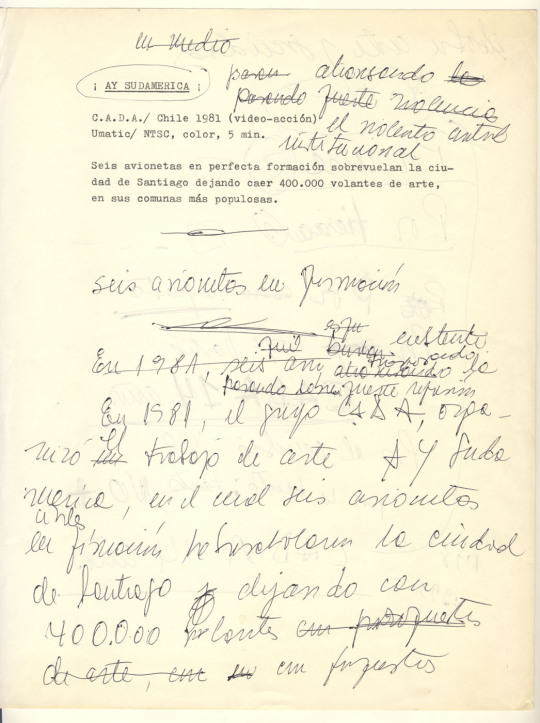 en medio
¡ AY SUDAMERICA ¡
atravesando la
pasando fuerte violencia
C.A.D.A./ Chile 1981 (video-acción)
el violento
Umatic/ NTSC, color, 5 min.
institucional
Seis avionetas en perfecta formación sobrevuelan la ciu-
dad de Santiago dejando caer 400.000 volantes de arte,
en sus comunas más populosas.
seis avionetas en formación
existente
En 1981, seis avi atravesando la
pasando fuerte represión
En 1981, el grupo CADA, orga-
nizó un trabajo de arte AY Suda
merica, en el cual seis avionetas
civiles
en formación sobrevolaron la ciudad
de Santiago y dejando caer
400.000 volantes
de arte, con en con